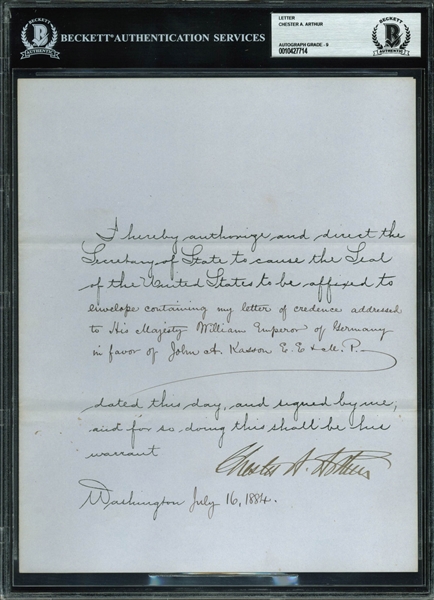 BECKETT
AUTHENTIC
BECKETT AUTHENTICATION SERVICES
LETTER
CHESTER A. ARTHUR
AUTOGRAPH GRADE - 9
0010427714
BECKETT
AUTHENTIC
I hereby authorize and direct the
Secretary of State to cause the Seal
of the United States to be affixed to
envelope containing my letter of credence addressed
to His Majesty William Emperor of Germany
in favor of John A. Kasson E. E & M. P.
dated this day, and signed by me;
and for so doing this shall be his
warrant
Chester A. Arthur
Washington July 16, 1884.